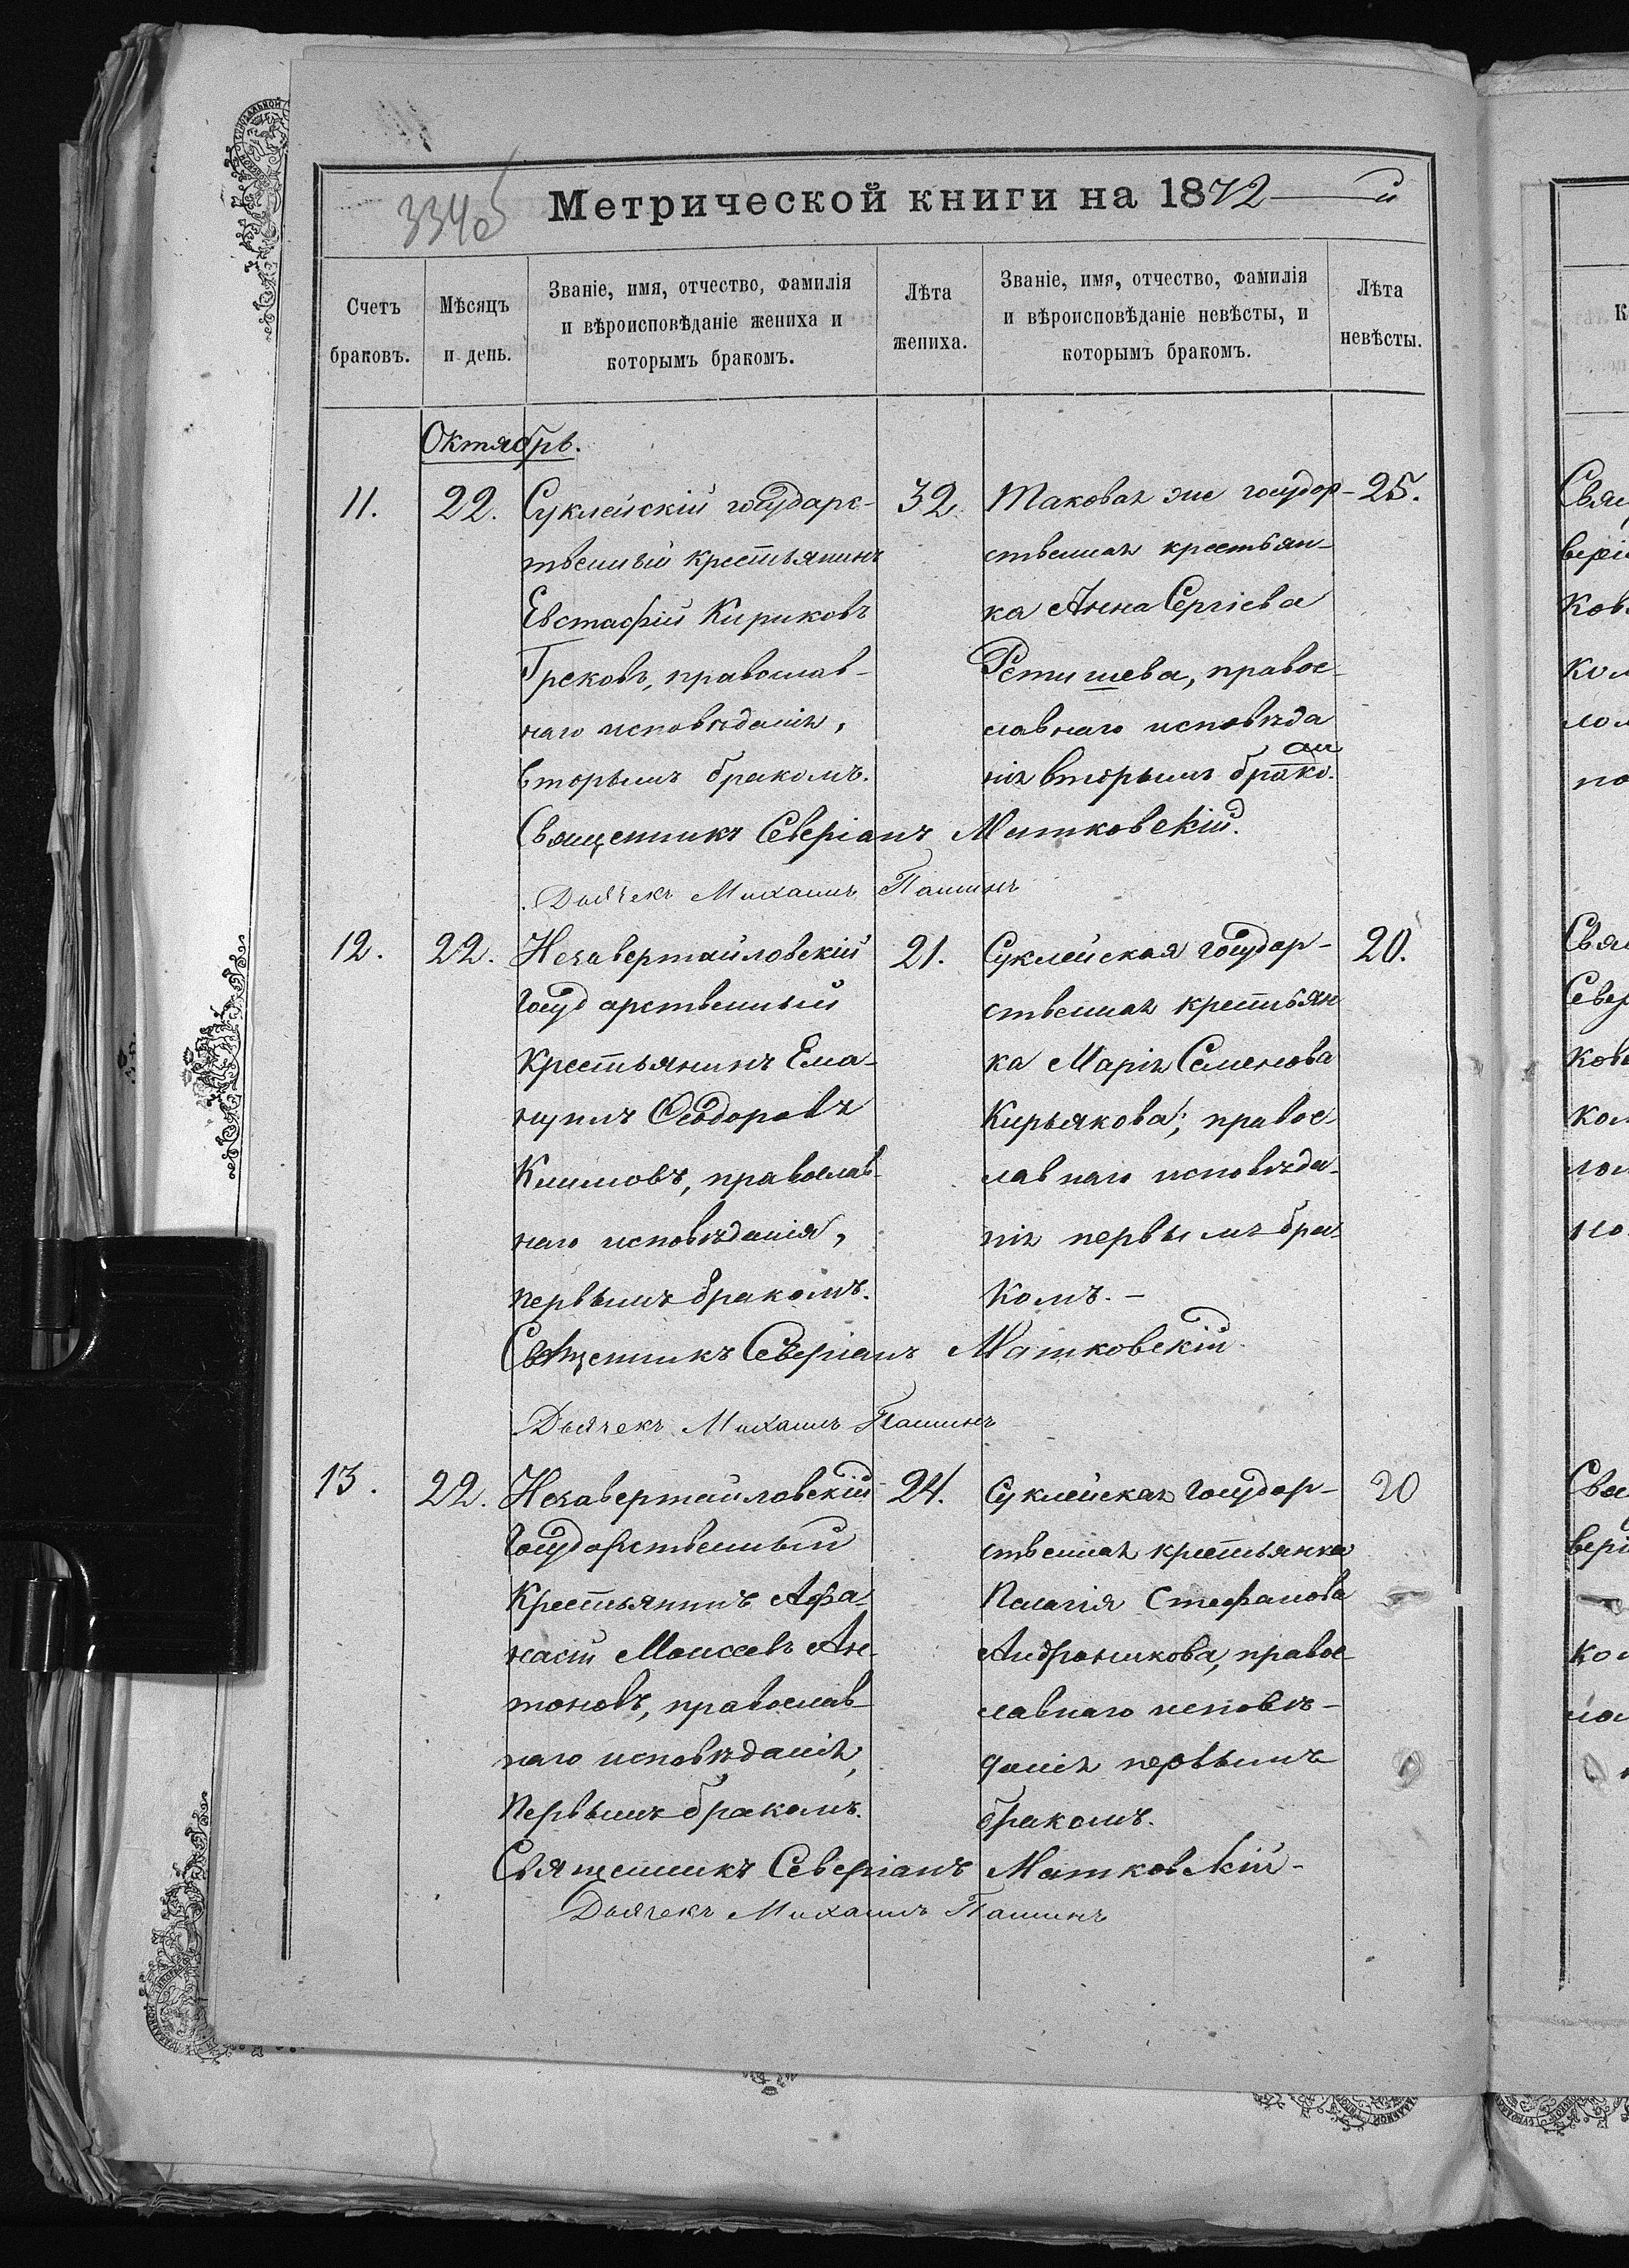 334об
Метрической книги на 1872 й
Счетъ браковъ.
Мѣсяцъ и день.
Званіе, имя, отчество, фамилія и вѣроисповѣданіе жениха и которымъ бракомъ.
Лѣта жениха.
Званіе, имя, отчество, фамилія и вѣроисповѣданіе невѣсты, и которымъ бракомъ.
Лѣта невѣсты.
Октябрь.
11.
22.
Суклейскій государс-
твенный крестьянинъ
Евстафій Кириковъ
Грековъ, православ-
наго исповѣданія,
вторымъ бракомъ.
32.
Таковая же государ-
ственная крестьян-
ка Анна Сергіева
Ретишева, правос-
лавнаго исповѣда
нія вторымъ брако.
25.
Священникъ Северіанъ Матковскій.
Дьячекъ Михаилъ Пашинъ
12.
22.
Незавертайловскій
государственный
крестьянинъ Ема-
нуилъ Ѳеодоровъ
Климовъ, православ-
наго исповѣданія,
первымъ бракомъ.
21.
Суклейская государ-
ственная крестьян
ка Марія Семенова
Кирьякова, правос-
лавнаго исповѣда-
нія первымъ бра-
комъ. -
20.
Священникъ Северіанъ Матковскій
Дьячекъ Михаилъ Пашинъ
13.
22.
Незавертайловскій
государственный
крестьянинъ Афа-
насій Моисеевъ Ан-
тоновъ, православ-
наго исповѣданія,
первымъ бракомъ.
24.
Суклейская государ-
ственная крестьянка
Пелагія Стефанова
Андроникова, правос
лавнаго исповѣ-
данія первымъ
бракомъ.
20
Священникъ Северіанъ Матковскій-
Дьячекъ Михаилъ Пашинъ